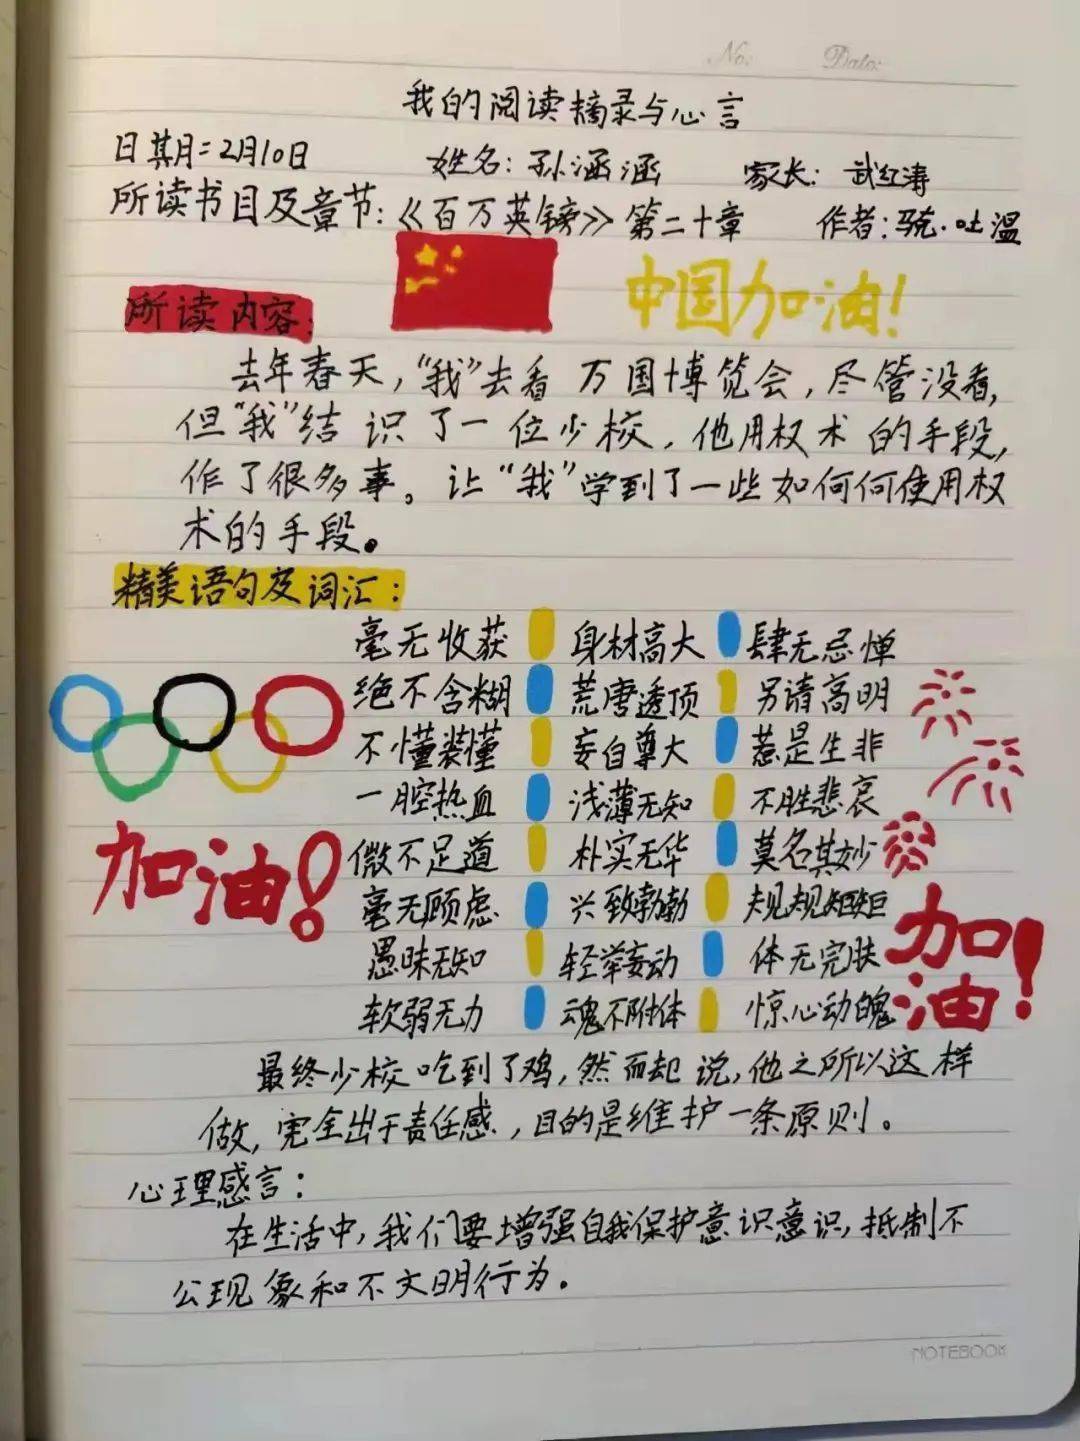 No:
Date:
我的阅读摘录与心言
日期=2月10日 姓名：孙涵涵 家长：武红涛
所读书目及章节：《百万英镑》第二十章 作者：马克·吐温
中国加油！
所读内容：
去年春天，“我”去看万国博览会，尽管没看，
但“我”结识了一位少校，他用权术的手段，
作了很多事。让“我”学到了一些如何何使用权
术的手段。
精美语句及词汇：
毫无收获 身材高大 肆无忌惮
绝不含糊 荒唐透顶 另请高明
不懂装懂 妄自尊大 惹是生非
一腔热血 浅薄无知 不胜悲哀
微不足道 朴实无华 莫名其妙
毫无顾虑 兴致勃勃 规规矩矩
愚昧无知 轻举妄动 体无完肤
软弱无力 魂不附体 惊心动魄
加油！
加
油！
最终少校吃到了鸡，然而起说，他之所以这样
做，完全出于责任感，目的是维护一条原则。
心理感言：
在生活中，我们要增强自我保护意识意识，抵制不
公现象和不文明行为。
NOTEBOOK